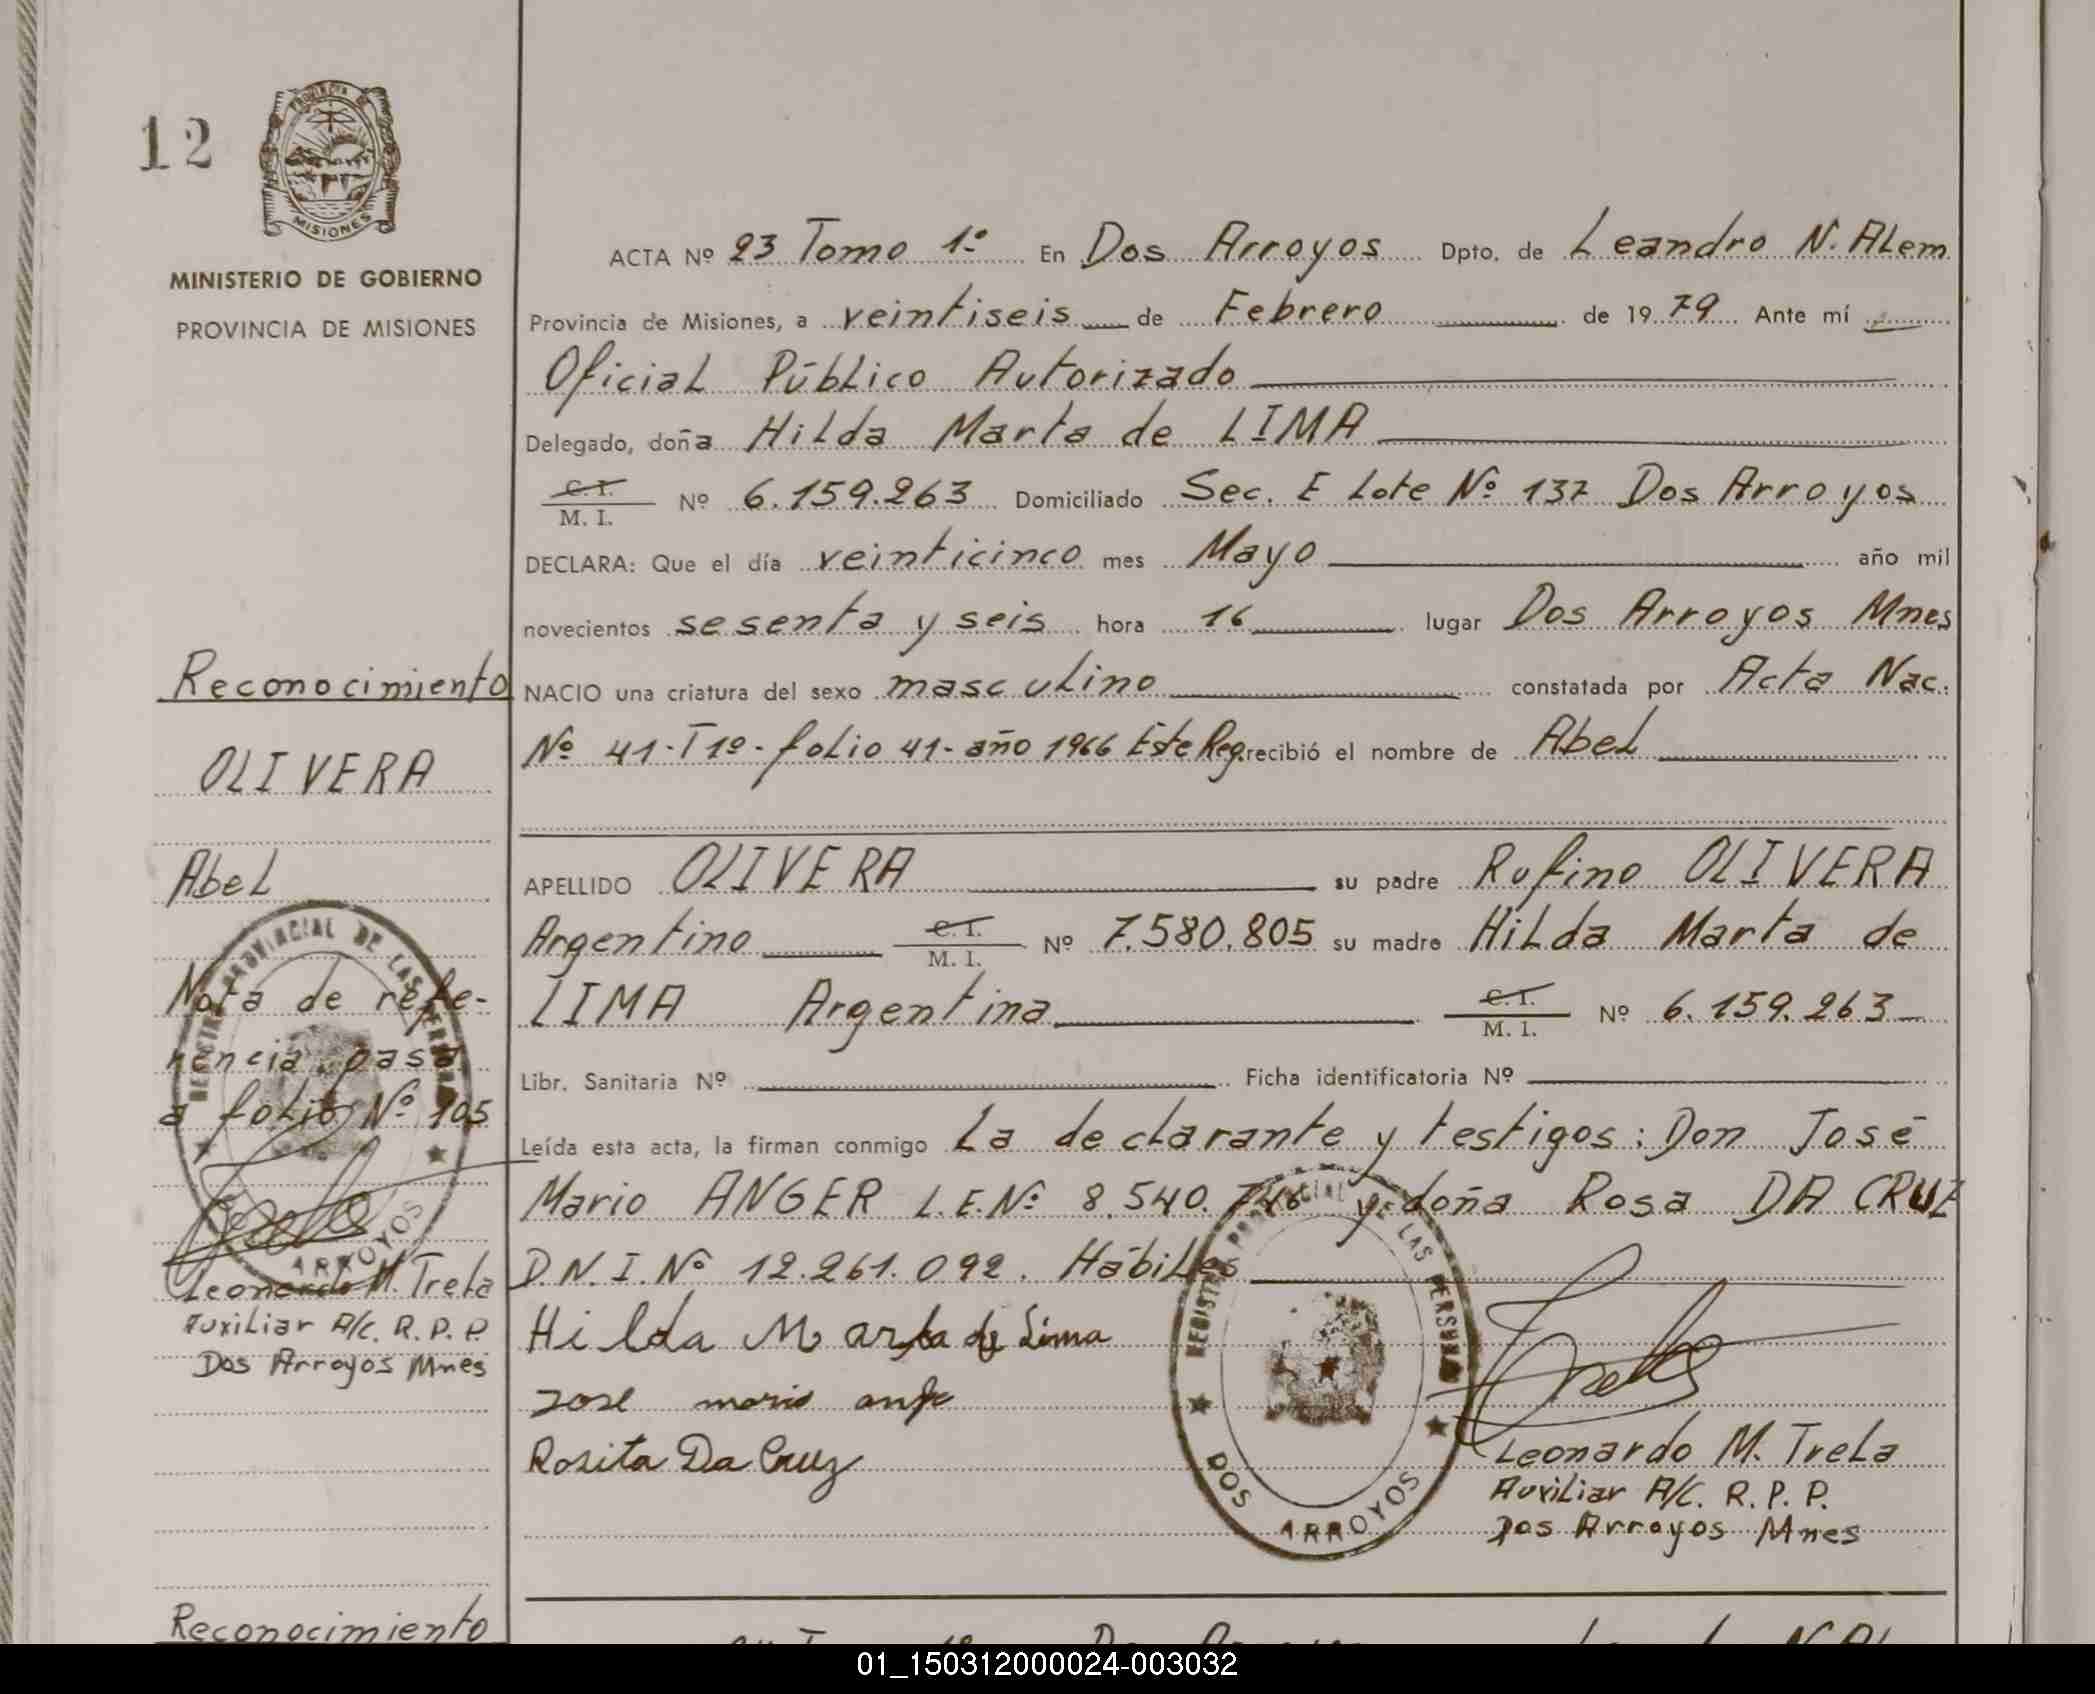 12
PROVINCIA DE
MISIONES
MINISTERIO DE GOBIERNO
PROVINCIA DE MISIONES
Reconocimiento
OLIVERA
Abel
Nota de refe-
rencia pasa
a folio Nº 105
Leonardo M. Trela
Auxiliar A/C. R. P. P.
Dos Arroyos Mnes
REGISTRO PROVINCIAL DE LAS PERSONAS
ARROYOS
ACTA Nº 23 Tomo 1º En Dos Arroyos Dpto. de Leandro N. ALem
Provincia de Misiones, a veintiseis de Febrero de 1979 Ante mí
Oficial Público Autorizado
Delegado, doña Hilda Marta de LIMA
C. I.
M. I. Nº 6.159.263 Domiciliado Sec. E Lote Nº 137 Dos Arroyos
DECLARA: Que el día veinticinco mes Mayo año mil
novecientos sesenta y seis hora 16 lugar Dos Arroyos Mnes
NACIO una criatura del sexo masculino constatada por Acta Nac.
Nº 41-T1º-folio 41-año 1966 Este Reg. recibió el nombre de Abel
APELLIDO OLIVERA su padre Rufino OLIVERA
Argentino C. I. M. I. Nº 7.580.805 su madre Hilda Marta de
LIMA Argentina C. I. M. I. Nº 6.159.263
Libr. Sanitaria Nº Ficha identificatoria Nº
Leída esta acta, la firman conmigo La declarante y testigos: Don José
Mario ANGER L.E.Nº 8.540.746 y doña Rosa DA CRUZ
D.N.I.Nº 12.261.092. Hábiles
Hilda Marta de Lima
Jose mario
Rosita Da Cruz
REGISTRO PROVINCIAL DE LAS PERSONAS
DOS ARROYOS
Leonardo M. Trela
Auxiliar A/C. R. P. P.
Dos Arroyos Mnes
Reconocimiento
01_150312000024-003032